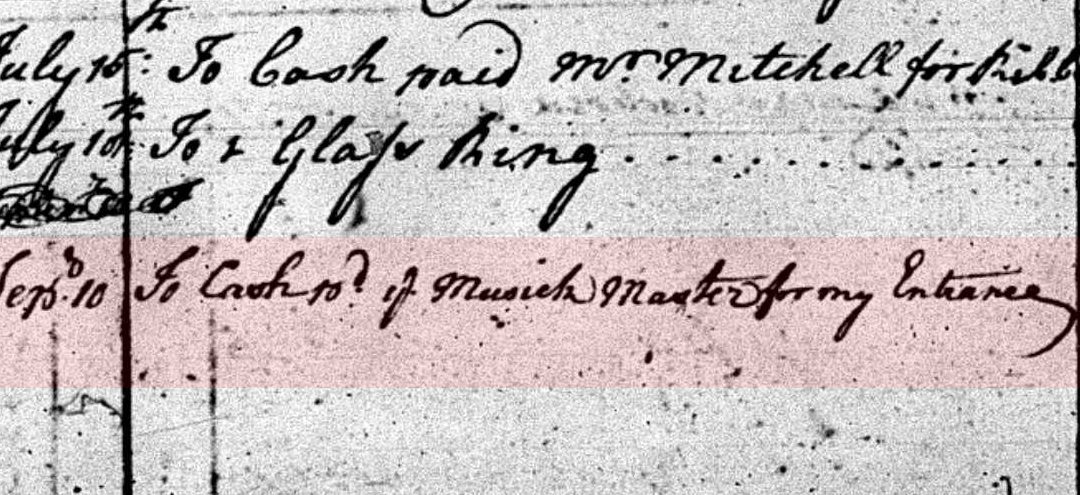 July 15th: To Cash paid Mr. Mitchell for Ribb
July 18th: To 1 Glass Ring . . . . . . . . . . .
Sepr. 10 To Cash pd. ye Musick Master for my Entrance